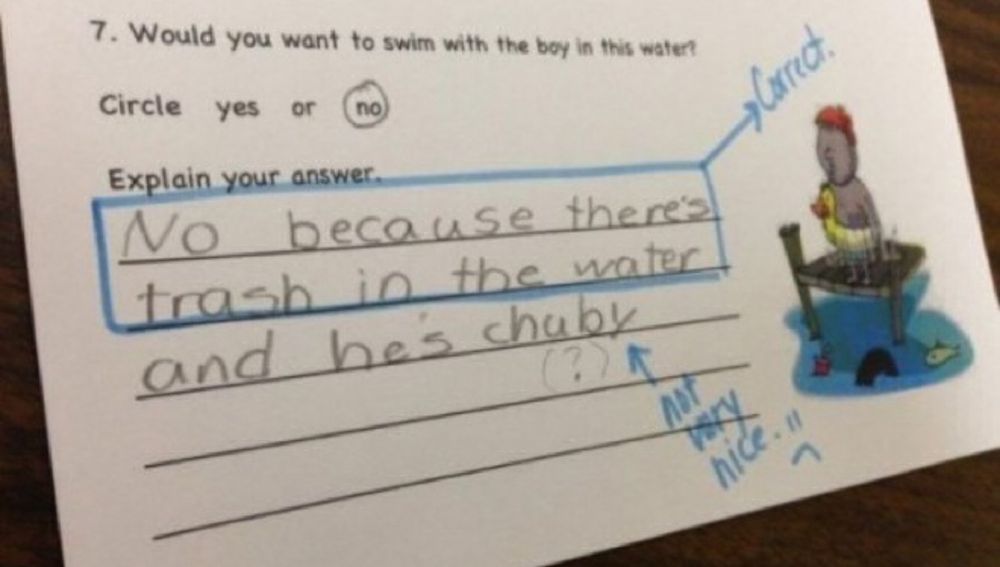 7. Would you want to swim with the boy in this water?
Correct.
Circle yes or no
Explain your answer.
No because there's
trash in the water
and he's chuby
(?)
not
very
nice.